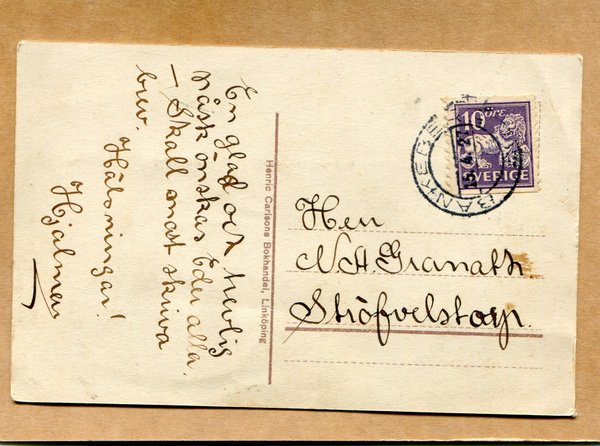 En glad och hevlig
påsk önskas Eder alla.
— Skall snart skriva
brev.
Hälsningar!
Hjalmar
Henric Carlsons Bokhandel, Linköping
10 ÖRE
SVERIGE
BANKEBERG
Herr
N.A. Granath
Ströfvelstorp.